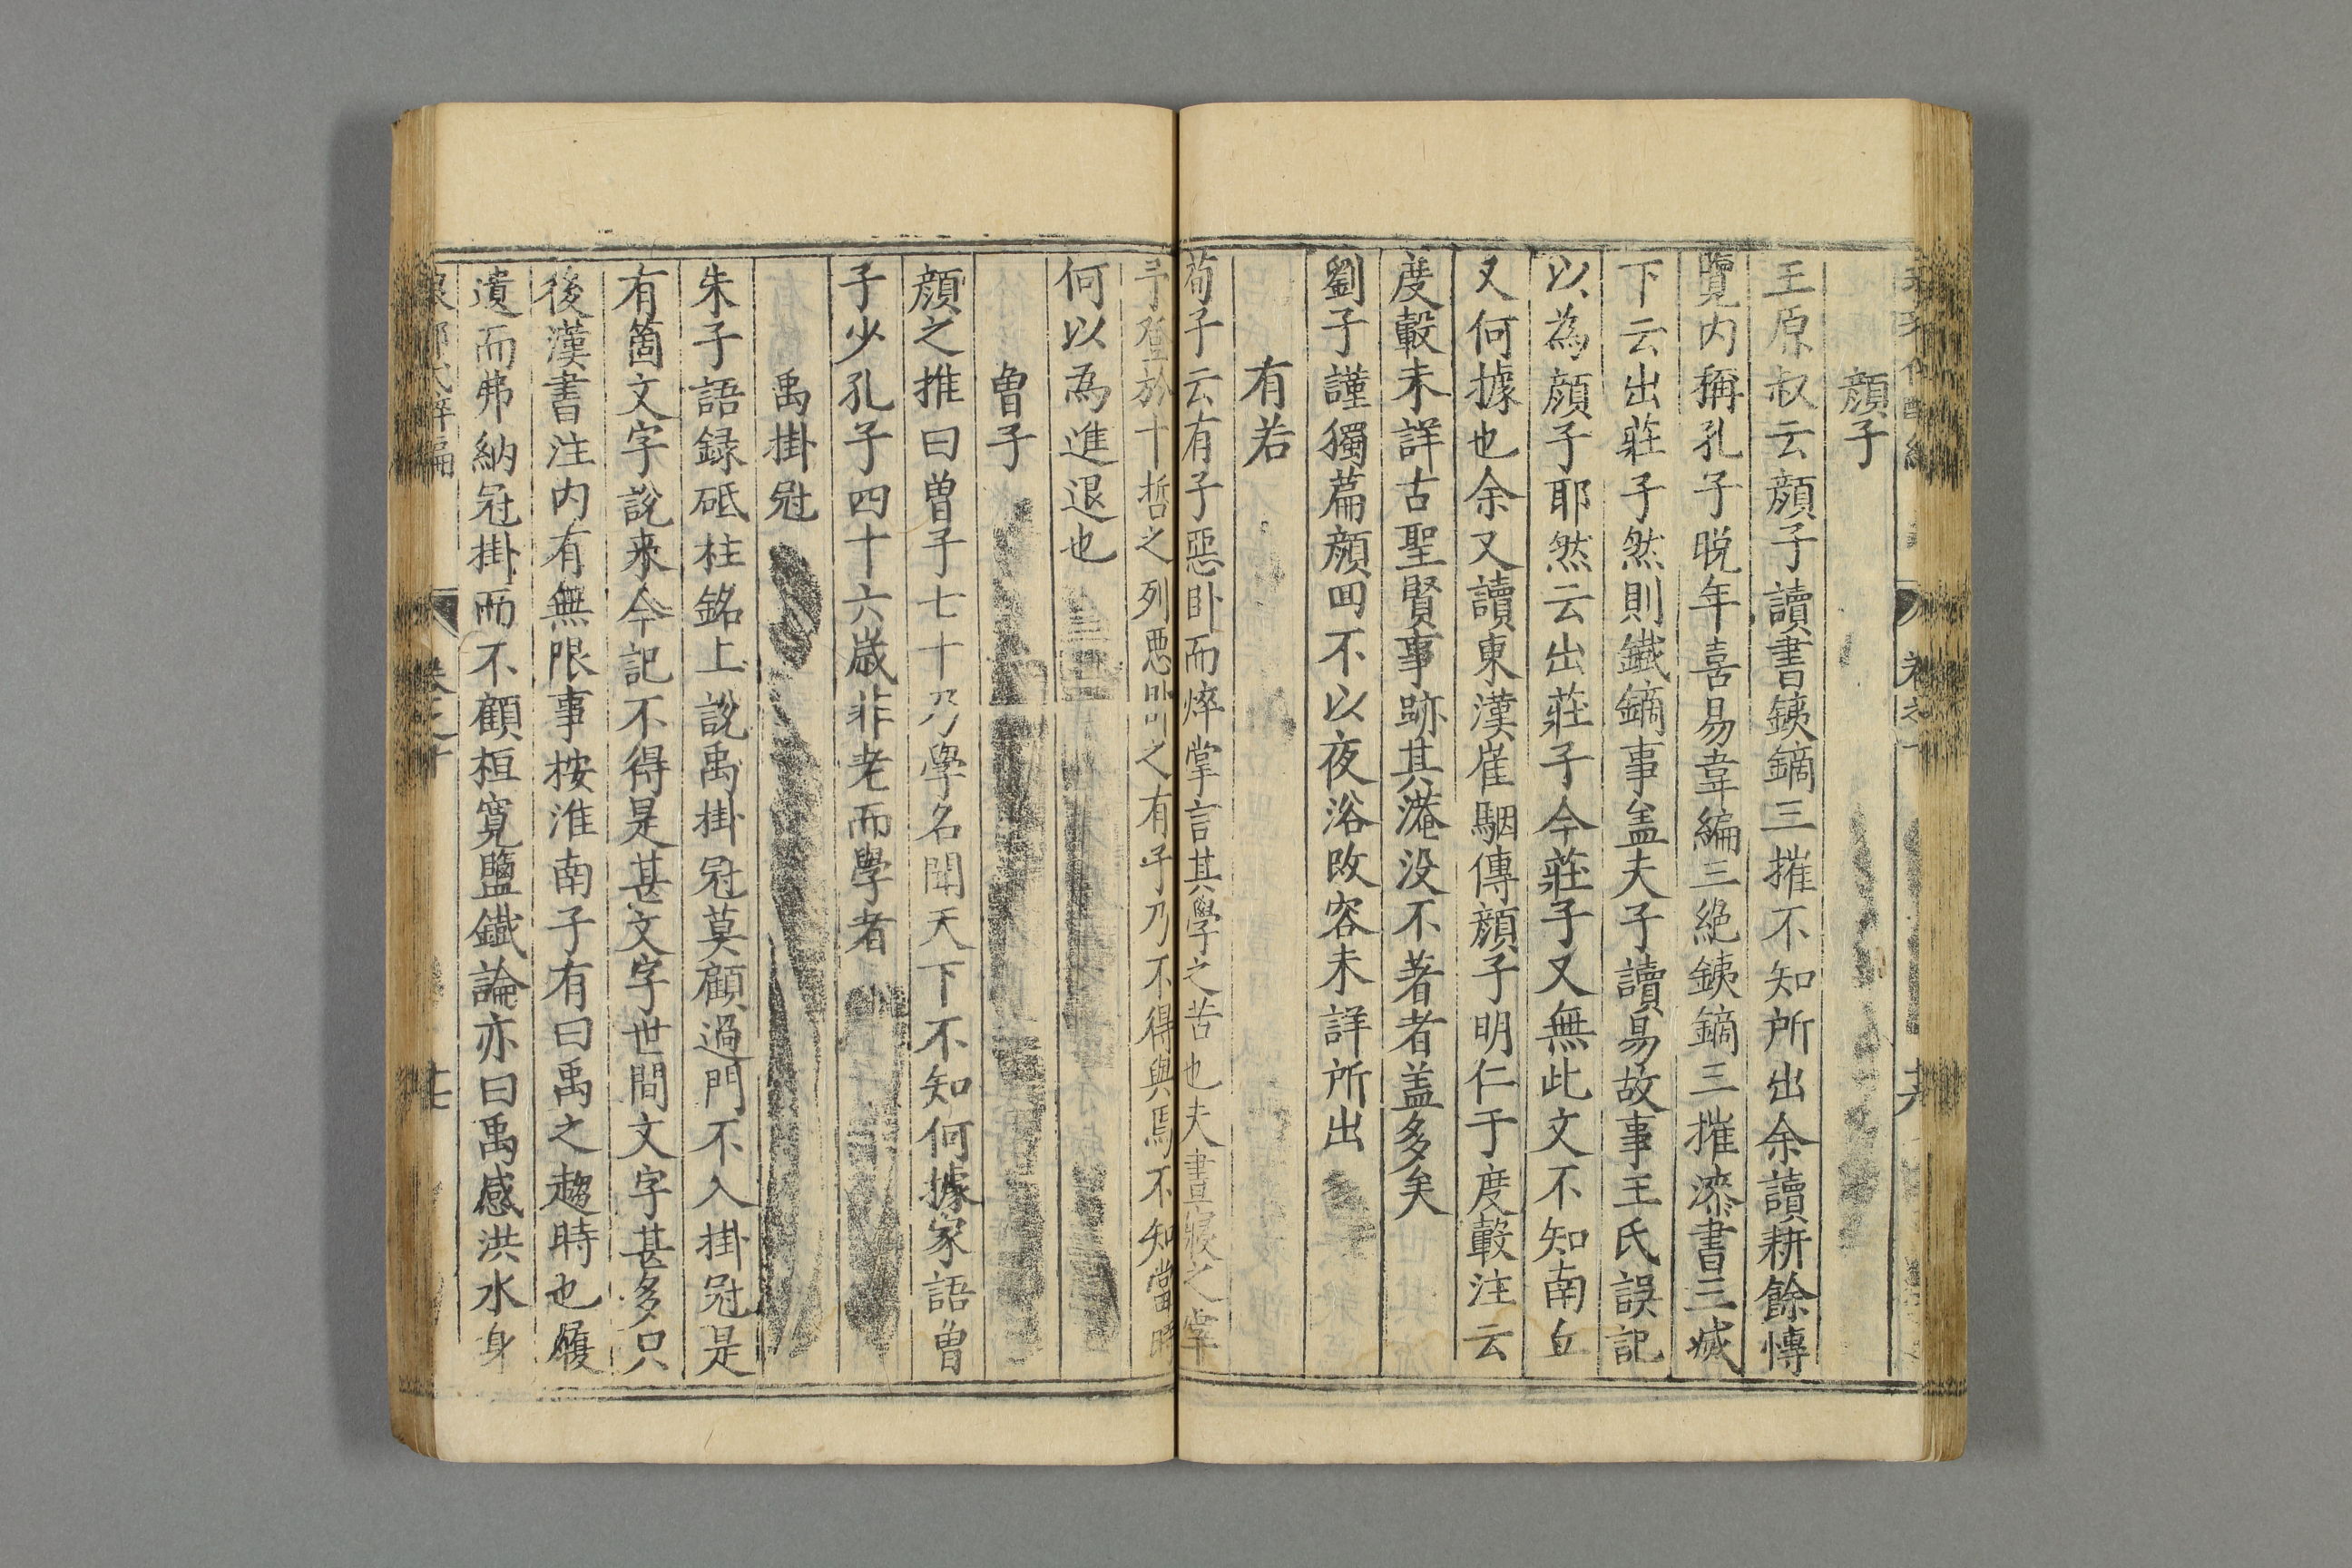 顔子
王原叔云顔子讀書鐵鏑三摧不知所出余讀耕餘愽
覽内稱孔子晚年喜易韋編三絶鐵鏑三摧漆書三滅
下云出莊子然則鐵鏑事盖夫子讀易故事王氏誤記
以為顔子耶然云出莊子今莊子又無此文不知南丘
又何據也余又讀東漢崔駰傳顔子明仁于度轂注云
度轂未詳古聖賢事跡其淹没不著者盖多矣
劉子謹獨篇顔回不以夜浴改容未詳所出
有若
荀子云有子惡卧而焠掌言其學之苦也夫晝寢之宰
予登於十哲之列惡卧之有子乃不得與焉不知當時
何以為進退也
曾子
顔之推曰曽子七十乃學名聞天下不知何據家語曽
子少孔子四十六歳非老而學者
禹掛冠
朱子語録砥柱銘上說禹掛冠莫顧過門不入掛冠是
有箇文字說来今記不得是甚文字世間文字甚多只
後漢書注内有無限事按淮南子有曰禹之趨時也履
遺而弗納冠掛而不顧桓寛鹽鐵論亦曰禹感洪水身